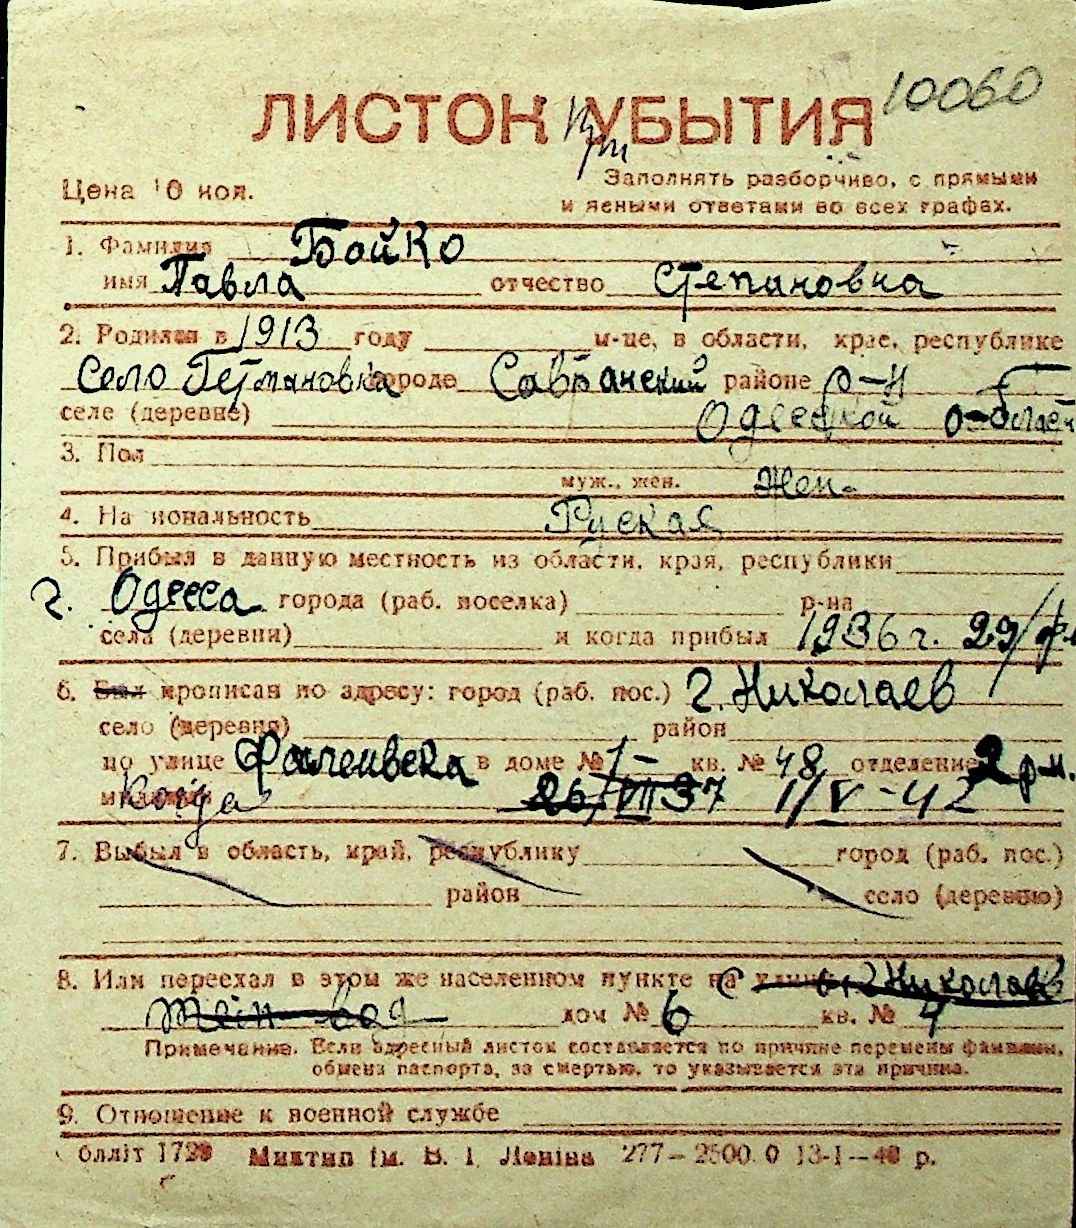 10060
ЛИСТОК УБЫТИЯ
При
Цена 10 коп.
Заполнять разборчиво, с прямыми
и ясными ответами во всех графах.
1. Фамилия Бойко
имя Павла отчество Степановна
2. Родился в 1913 году м-це, в области, крае, республике
Село Гетмановка городе Савранский районе р-н
селе (деревне) Одесской области
3. Пол
муж., жен. Жен-
4. Национальность Руская
5. Прибыл в данную местность из области, края, республики
г. Одесса города (раб. поселка) р-на
села (деревни) и когда прибыл 1936 г. 29/
6. Был прописан по адресу: город (раб. пос.) г. Николаев
село (деревня) район
по улице в доме № 1 кв. № 48 отделение 2 р.м.
милиции Когда 26/VII 37 1/V-42
7. Выбыл в область, край, республику город (раб. пос.)
район село (деревню)
8. Или переехал в этом же населенном пункте на улицу г. Николаев
дом № 6 кв. № 4
Примечание. Если адресный листок составляется по причине перемены фамилии,
обмена паспорта, за смертью, то указывается эта причина.
9. Отношение к военной службе
блліт 1729 Миктип ім. В. І. Леніна 277—2500.0 13-I-40 р.